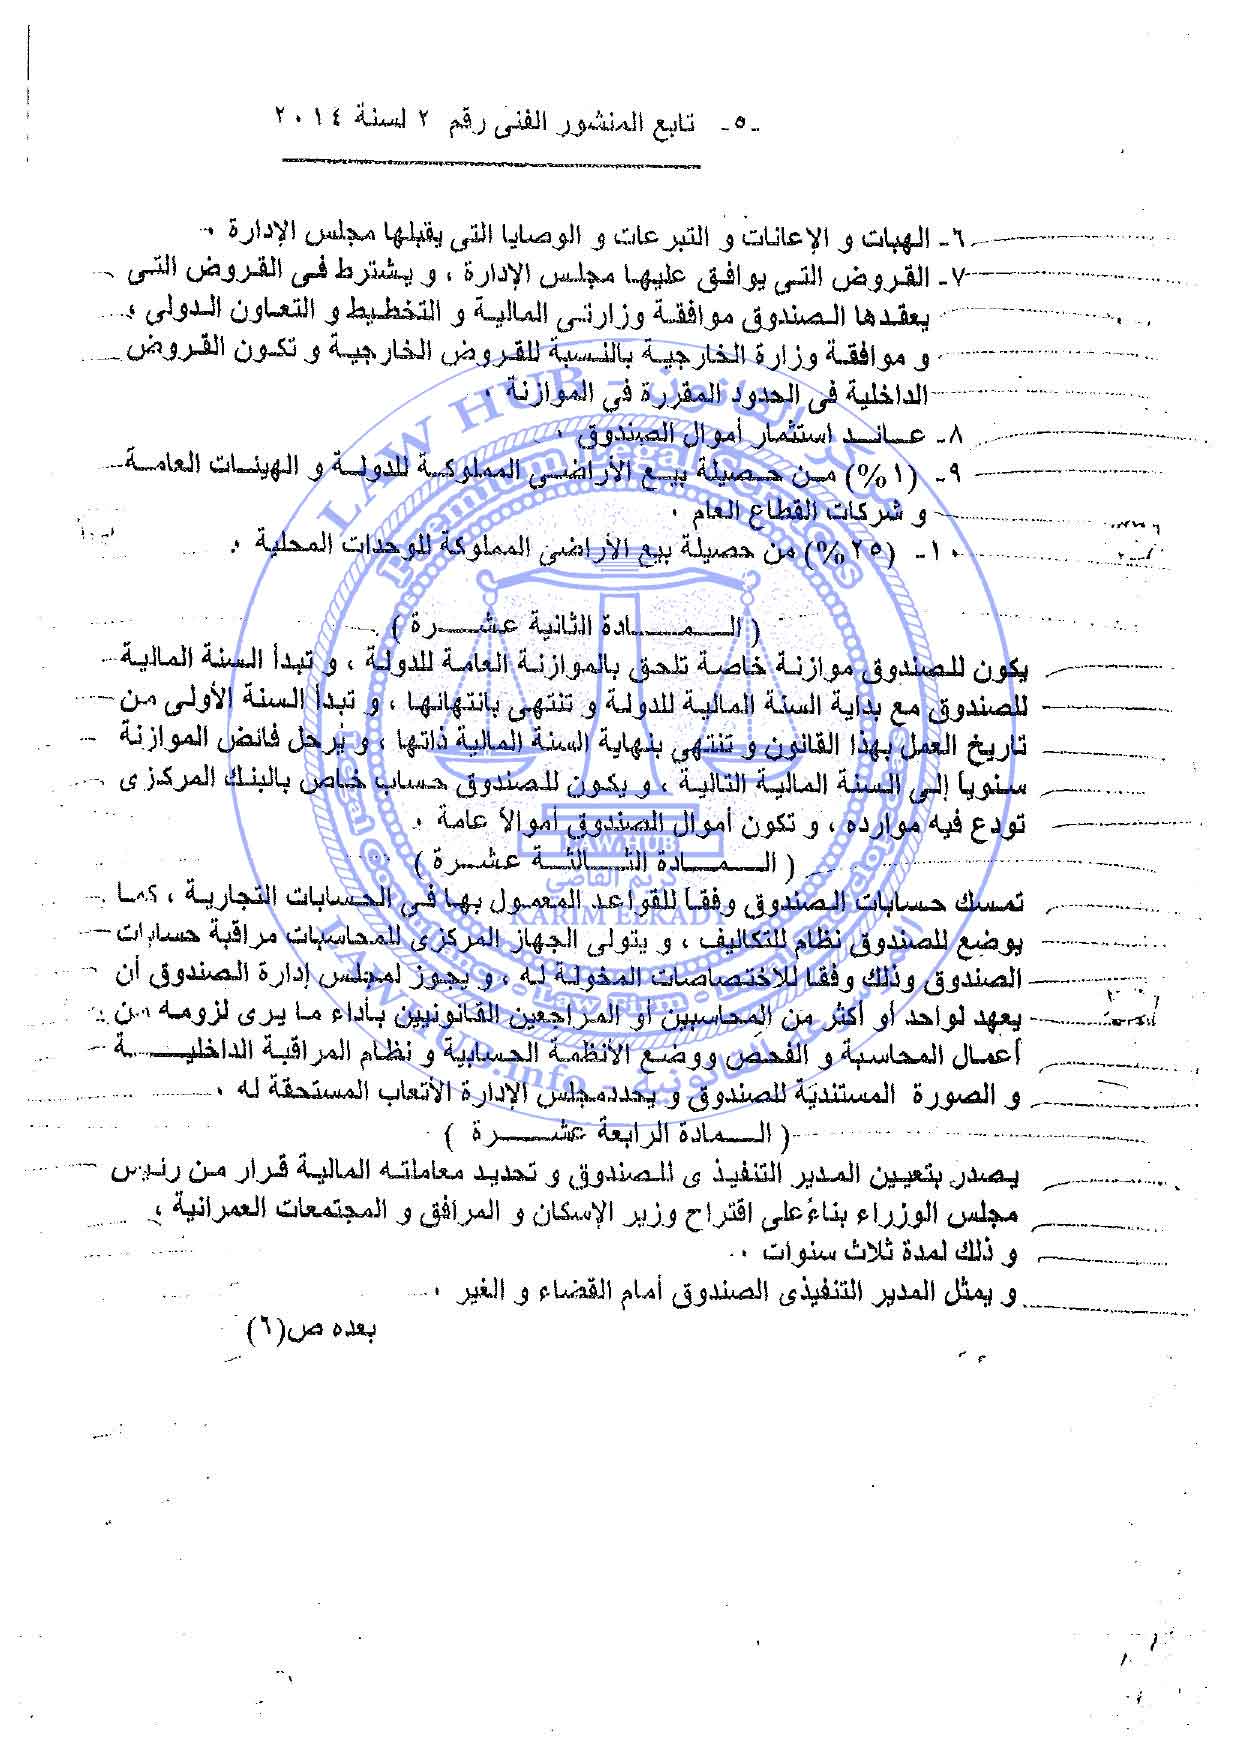 -٥- تابع المنشور الفنى رقم ٢ لسنة ٢٠١٤
٦- الهبات و الإعانات و التبرعات و الوصايا التى يقبلها مجلس الإدارة .
٧- القروض التى يوافق عليها مجلس الإدارة ، و يشترط فى القروض التى
يعقدها الصندوق موافقة وزارتى المالية و التخطيط و التعاون الدولى ،
و موافقة وزارة الخارجية بالنسبة للقروض الخارجية و تكون القروض
الداخلية فى الحدود المقررة فى الموازنة .
٨- عائد استثمار أموال الصندوق .
٩- (١%) من حصيلة بيع الأراضى المملوكة للدولة و الهيئات العامة
و شركات القطاع العام .
١٠- (٢٥%) من حصيلة بيع الأراضى المملوكة للوحدات المحلية .
( المادة الثانية عشرة )
يكون للصندوق موازنة خاصة تلحق بالموازنة العامة للدولة ، و تبدأ السنة المالية
للصندوق مع بداية السنة المالية للدولة و تنتهى بانتهائها ، و تبدأ السنة الأولى من
تاريخ العمل بهذا القانون و تنتهى بنهاية السنة المالية ذاتها ، و يرحل فائض الموازنة
سنوياً إلى السنة المالية التالية ، و يكون للصندوق حساب خاص بالبنك المركزى
تودع فيه موارده ، و تكون أموال الصندوق أموالاً عامة .
( المادة الثالثة عشرة )
تمسك حسابات الصندوق وفقاً للقواعد المعمول بها فى الحسابات التجارية ، كما
يوضع للصندوق نظام للتكاليف ، و يتولى الجهاز المركزى للمحاسبات مراقبة حسابات
الصندوق وذلك وفقا للاختصاصات المخولة له ، و يجوز لمجلس إدارة الصندوق أن
يعهد لواحد أو أكثر من المحاسبين أو المراجعين القانونيين بأداء ما يرى لزومه من
أعمال المحاسبة و الفحص ووضع الأنظمة الحسابية و نظام المراقبة الداخلية
و الصورة المستندية للصندوق و يحدد مجلس الإدارة الأتعاب المستحقة له .
( المادة الرابعة عشرة )
يصدر بتعيين المدير التنفيذى للصندوق و تحديد معاملاته المالية قرار من رئيس
مجلس الوزراء بناءً على اقتراح وزير الإسكان و المرافق و المجتمعات العمرانية ،
و ذلك لمدة ثلاث سنوات .
و يمثل المدير التنفيذى الصندوق أمام القضاء و الغير .
بعده ص(٦)
LAW HUB
Premium Legal Services
LAWHUB
كريم القاضى
KARIM ELKADY
LAWHUB.info